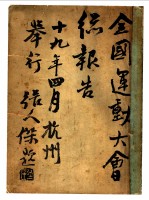 全國運動大會
總報告
十九年四月杭州
舉行
張人傑題